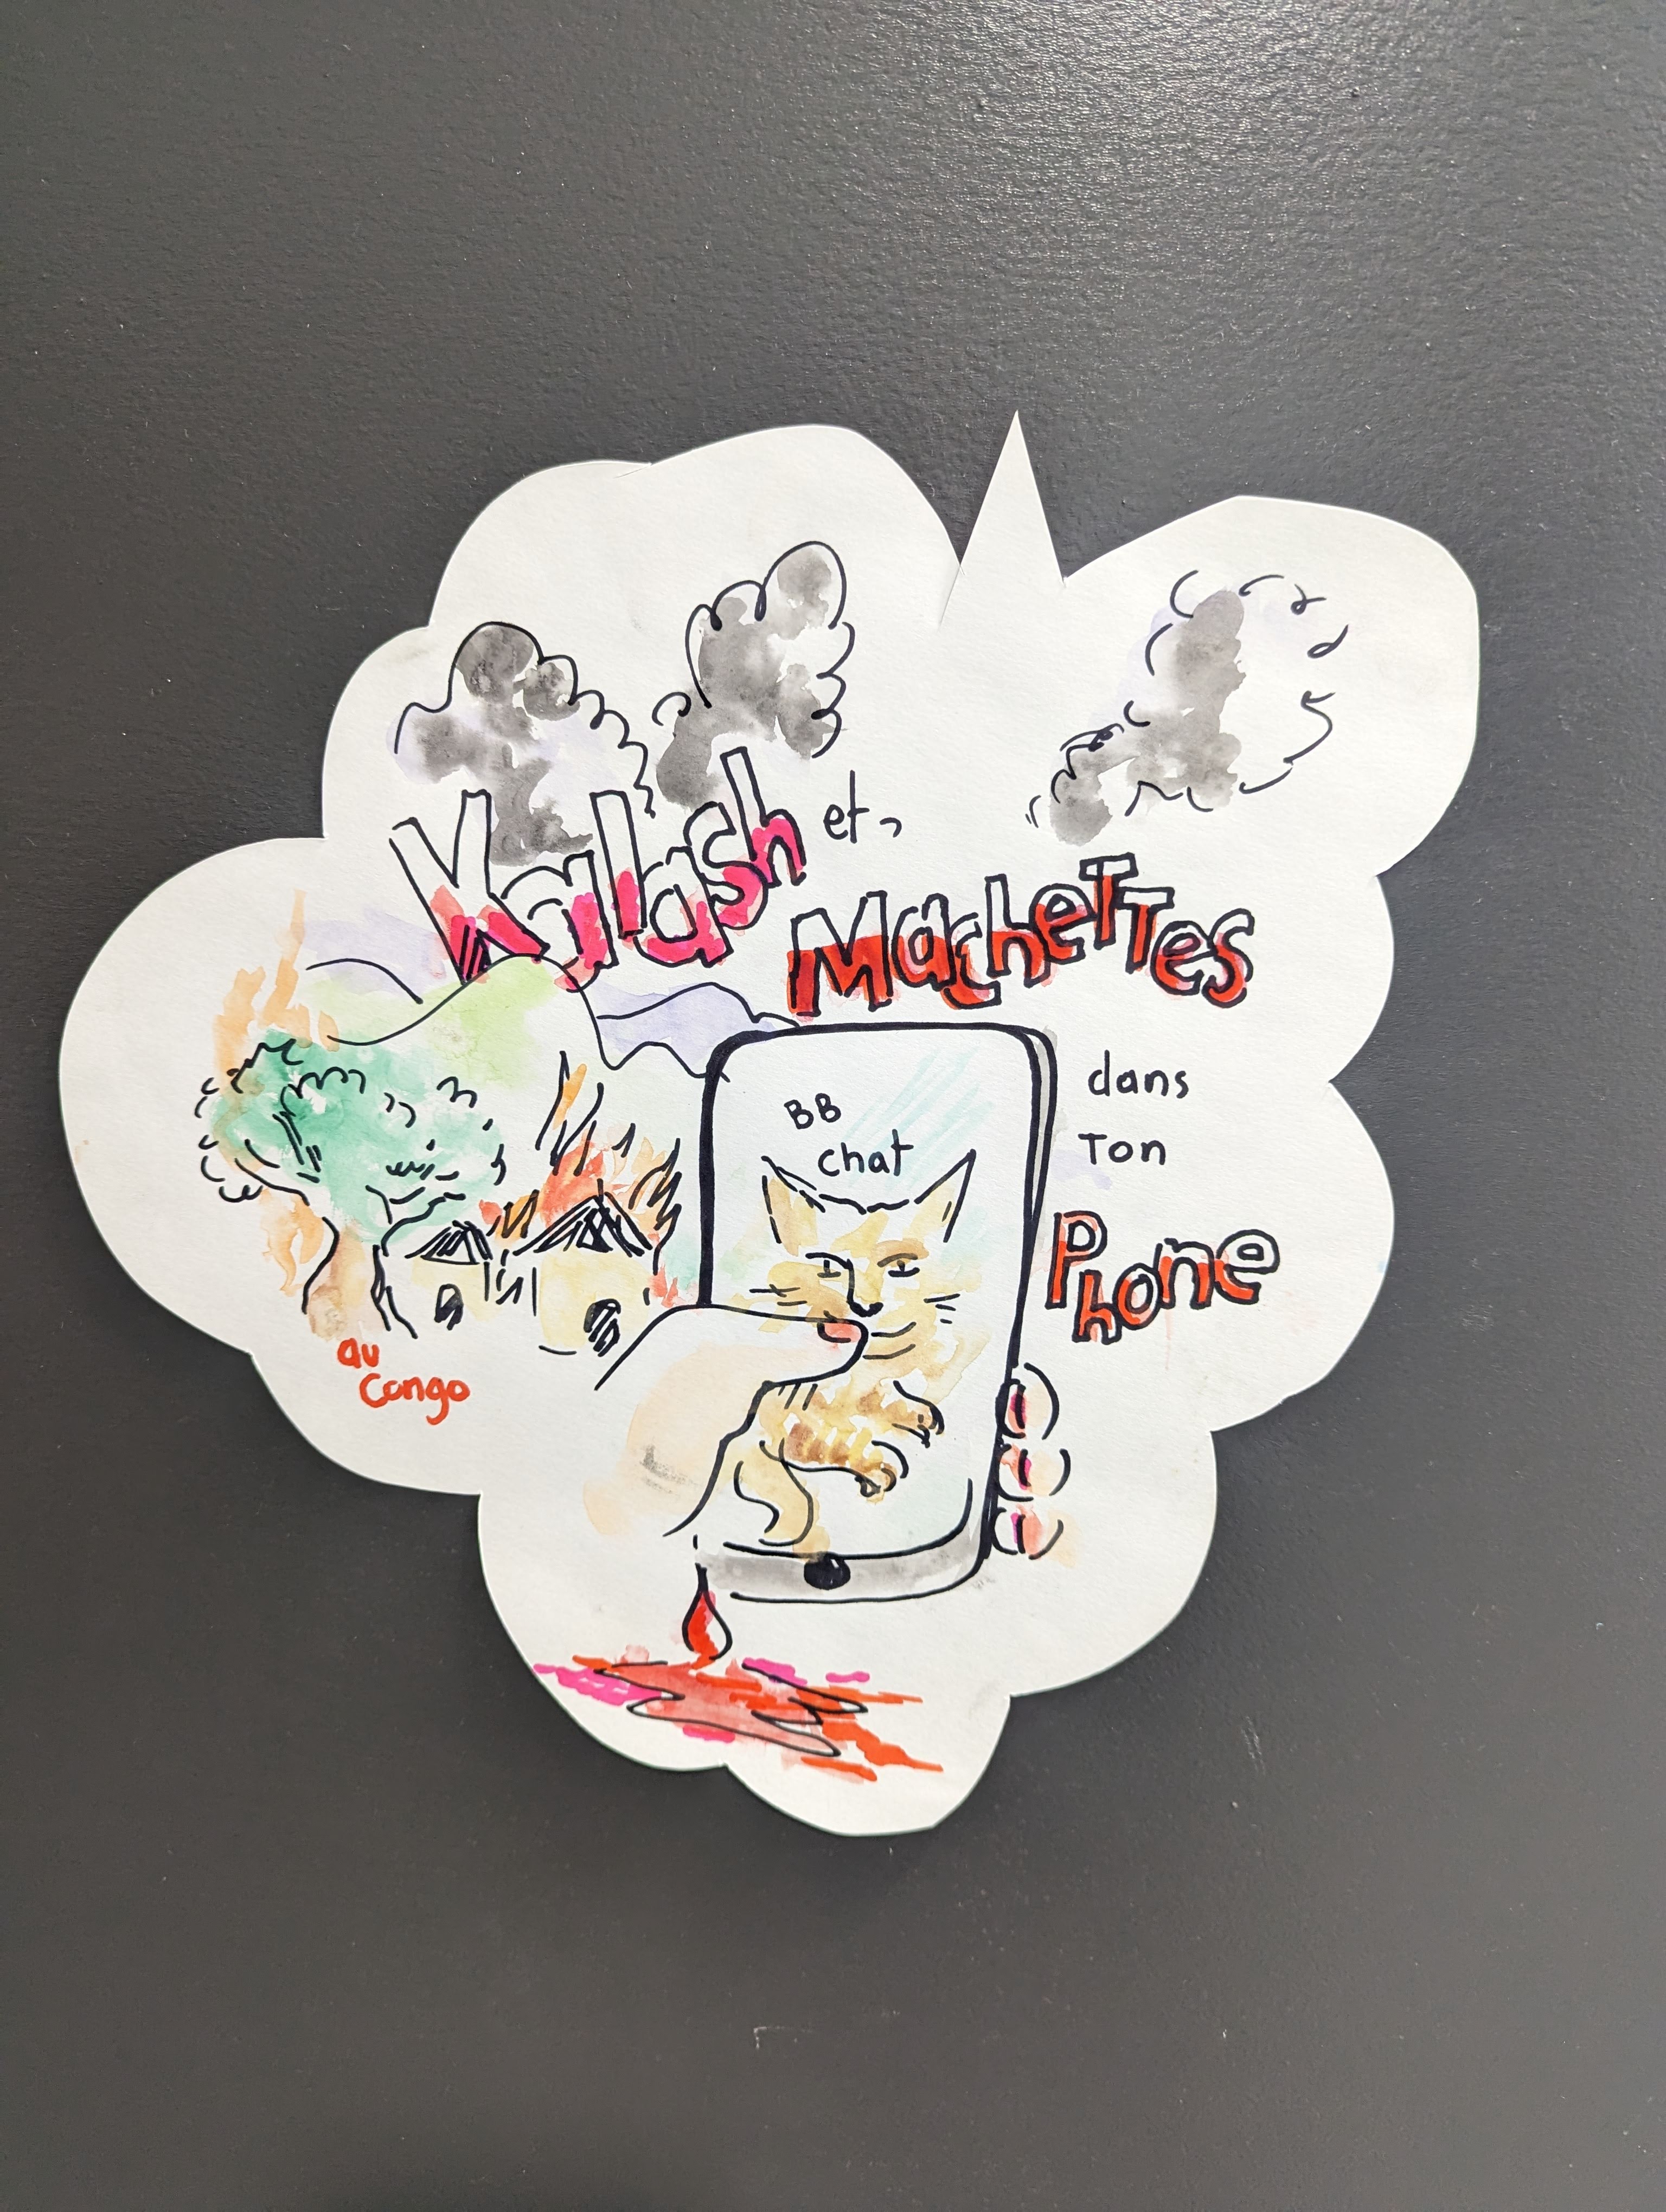 Kalash et
Machettes
dans
Ton
Phone
BB
chat
au
Congo